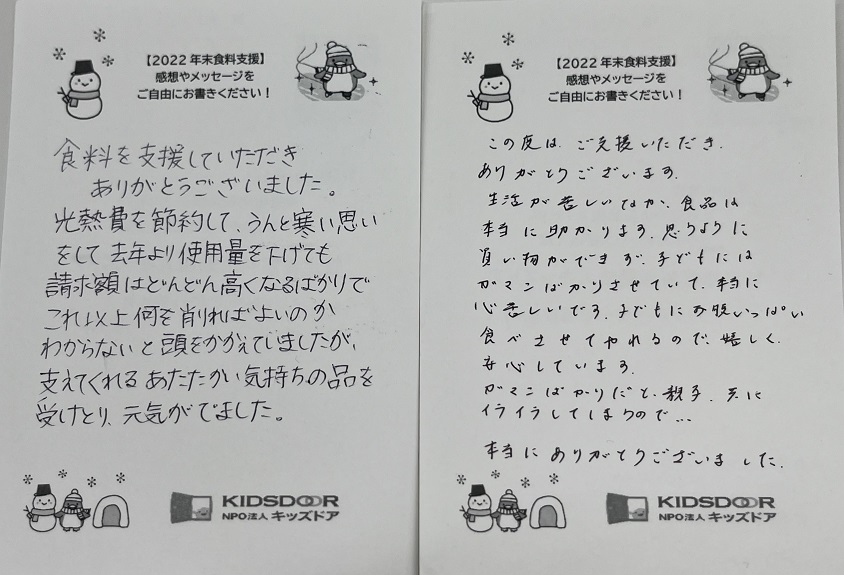 【2022年末食料支援】
感想やメッセージを
ご自由にお書きください！
食料を支援していただき
ありがとうございました。
光熱費を節約して、うんと寒い思い
をして去年より使用量を下げても
請求額はどんどん高くなるばかりで
これ以上何を削ればよいのか
わからないと頭をかかえていましたが、
支えてくれるあたたかい気持ちの品を
受けとり、元気がでました。
KIDSDOOR
NPO法人 キッズドア
【2022年末食料支援】
感想やメッセージを
ご自由にお書きください！
この度は、ご支援いただき、
ありがとうございます。
生活が苦しいなか、食品は
本当に助かります。思うように
買い物ができず、子どもには
ガマンばかりさせていて、本当に
心苦しいです。子どもにお腹いっぱい
食べさせてやれるので、嬉しく、
安心しています。
ガマンばかりだと、親子、共に
イライラしてしまうので…
本当にありがとうございました。
KIDSDOOR
NPO法人 キッズドア